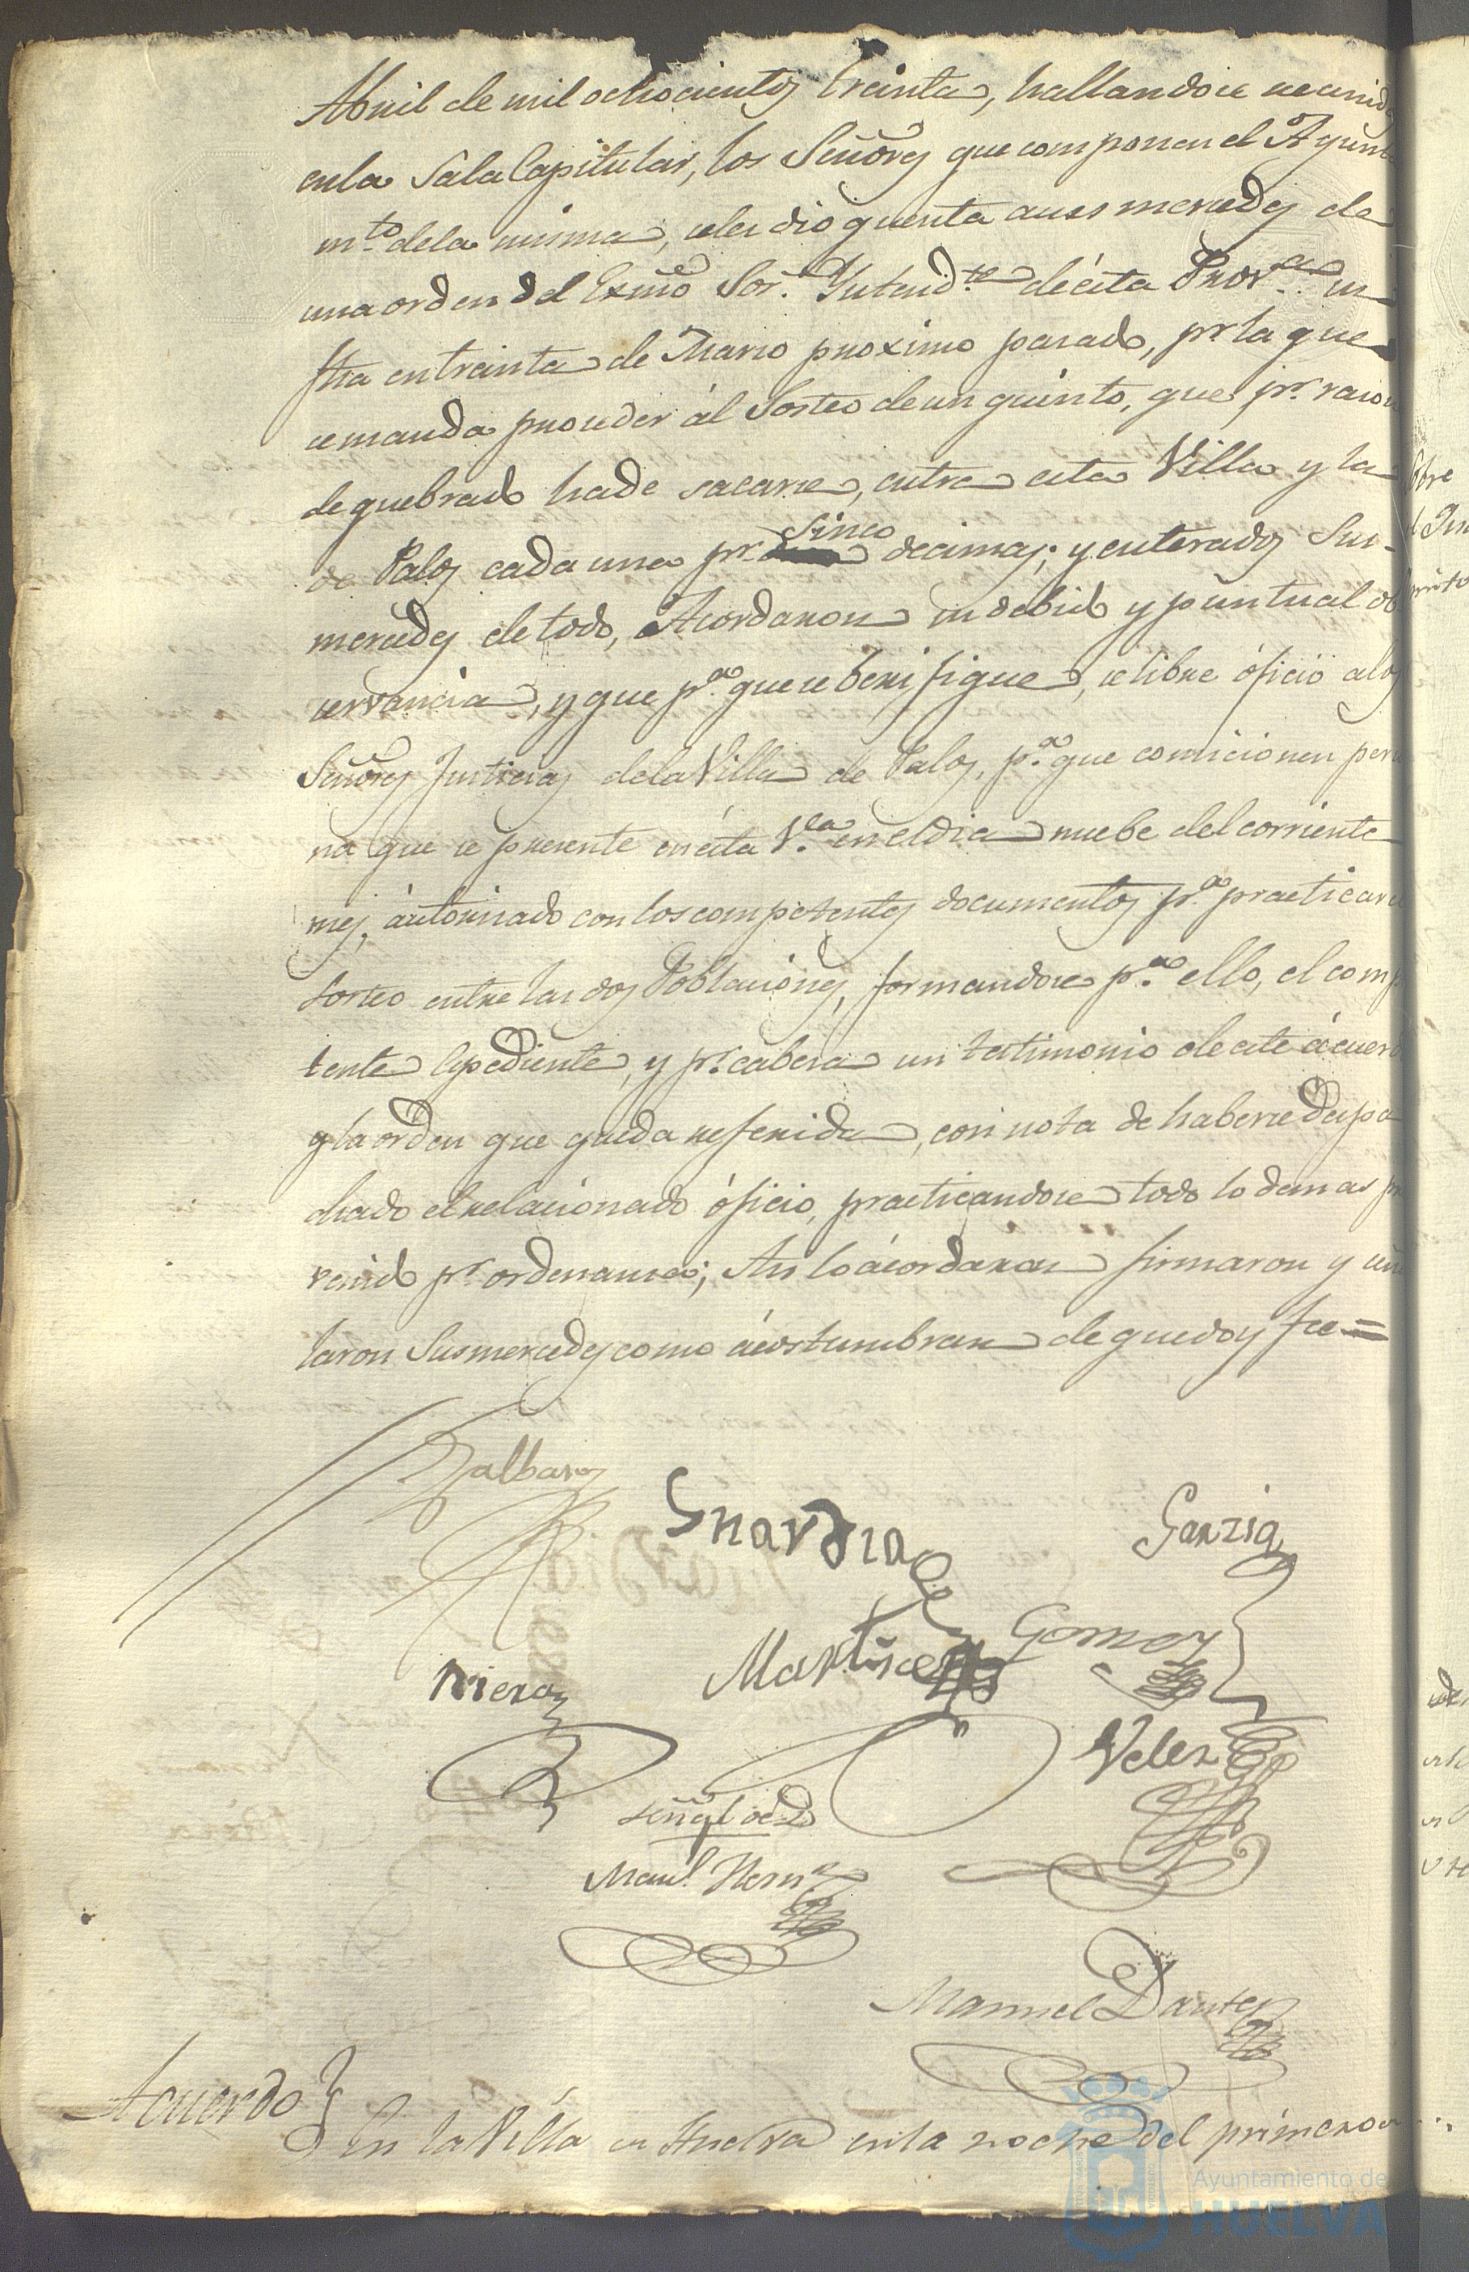 Abril de mil ochocientos treinta, hallandose reunid
en la Sala Capitular, los Señores que componen el Ayunt
mto. de la misma, se les dio quenta a sus mercedes de
una orden del Exmo Sor. Yntendte. de ésta Prova. su
fha en treinta de Marso proximo pasado, pr la que
se manda proceder ál Sorteo de un quinto, que pr. rason
de quebrado ha de sacarse, entre esta Villa y la
de Palos cada una pr. sinco decimas; y enterados Sus
mercedes de todo, Acordaron su debido y puntual ob
servancia, y que pa. que se berifique, se libre óficio a los
Señores Justicias de la Villa de Palos, pa. que comicionen perso
na que se presente en ésta Va. en el dia nuebe del corriente
mes, áutorisado con los competentes documentos pa. practicar el
sorteo entre las dos Poblaciones, formandose pa. ello, el compe
tente Espediente, y pr. cabesa un testimonio de este ácuerdo
y la órden que queda referida, con nota de haberse despa
chado el relacionado óficio, practicandose todo lo demas pre
venido pr. ordenansa; Asi lo ácordaron firmaron y señ
laron Sus mercedes como ácostumbran de que doy fee =
Galbares
Guardia
Garzia
Gomez
Martinez
Riera
Velez
Señal de D
Manl. Hern
Manuel Dantes
Acuerdo
En la Villa de Huelva en la noche del primero
Ayuntamiento de
HUELVA